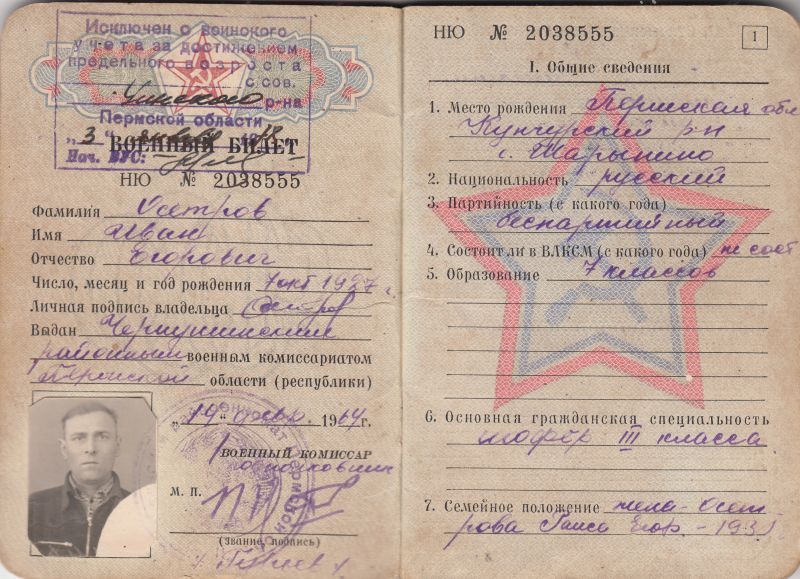 Исключен с воинского
учета за достижением
предельного возраста
с сов.
р-на
Пермской области
„ 3 “
Нач. ВУС:
ВОЕННЫЙ БИЛЕТ
НЮ № 2038555
Фамилия Осетров
Имя Иван
Отчество Егорович
Число, месяц и год рождения 7 окт 1927 г.
Личная подпись владельца Осетров
Выдан Чернушинским
районным военным комиссариатом
Пермской области (республики)
„19“ 1964 г.
ВОЕННЫЙ КОМИССАР
подполковник
М. П.
(звание, подпись)
НЮ № 2038555
1
I. Общие сведения
1. Место рождения Пермская обл
Кунгурский р-н
с.
2. Национальность русский
3. Партийность (с какого года)
беспартийный
4. Состоит ли в ВЛКСМ (с какого года) не сост
5. Образование 7 классов
6. Основная гражданская специальность
шофёр III класса
7. Семейное положение жена - Осет-
рова Егор. - 193